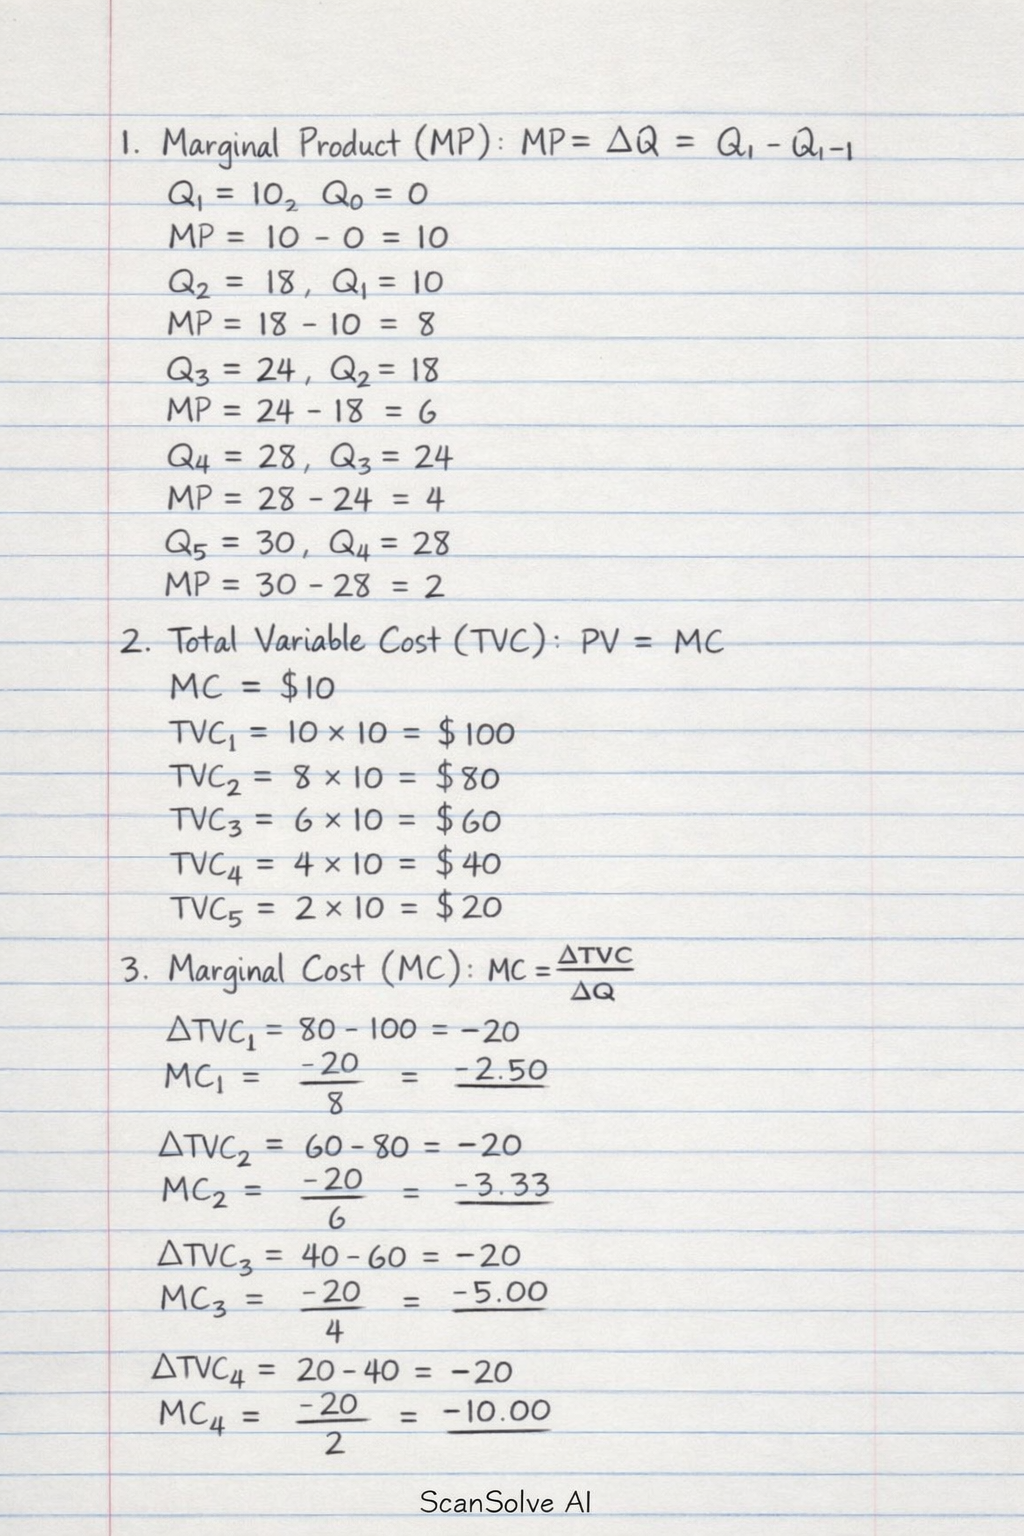 1. Marginal Product (MP): MP = ΔQ = Q₁ - Q₁₋₁
Q₁ = 10₂ Q₀ = 0
MP = 10 - 0 = 10
Q₂ = 18, Q₁ = 10
MP = 18 - 10 = 8
Q₃ = 24, Q₂ = 18
MP = 24 - 18 = 6
Q₄ = 28, Q₃ = 24
MP = 28 - 24 = 4
Q₅ = 30, Q₄ = 28
MP = 30 - 28 = 2
2. Total Variable Cost (TVC): PV = MC
MC = $10
TVC₁ = 10 × 10 = $100
TVC₂ = 8 × 10 = $80
TVC₃ = 6 × 10 = $60
TVC₄ = 4 × 10 = $40
TVC₅ = 2 × 10 = $20
3. Marginal Cost (MC): MC = ΔTVC/ΔQ
ΔTVC₁ = 80 - 100 = -20
MC₁ = -20/8 = -2.50
ΔTVC₂ = 60 - 80 = -20
MC₂ = -20/6 = -3.33
ΔTVC₃ = 40 - 60 = -20
MC₃ = -20/4 = -5.00
ΔTVC₄ = 20 - 40 = -20
MC₄ = -20/2 = -10.00
ScanSolve AI